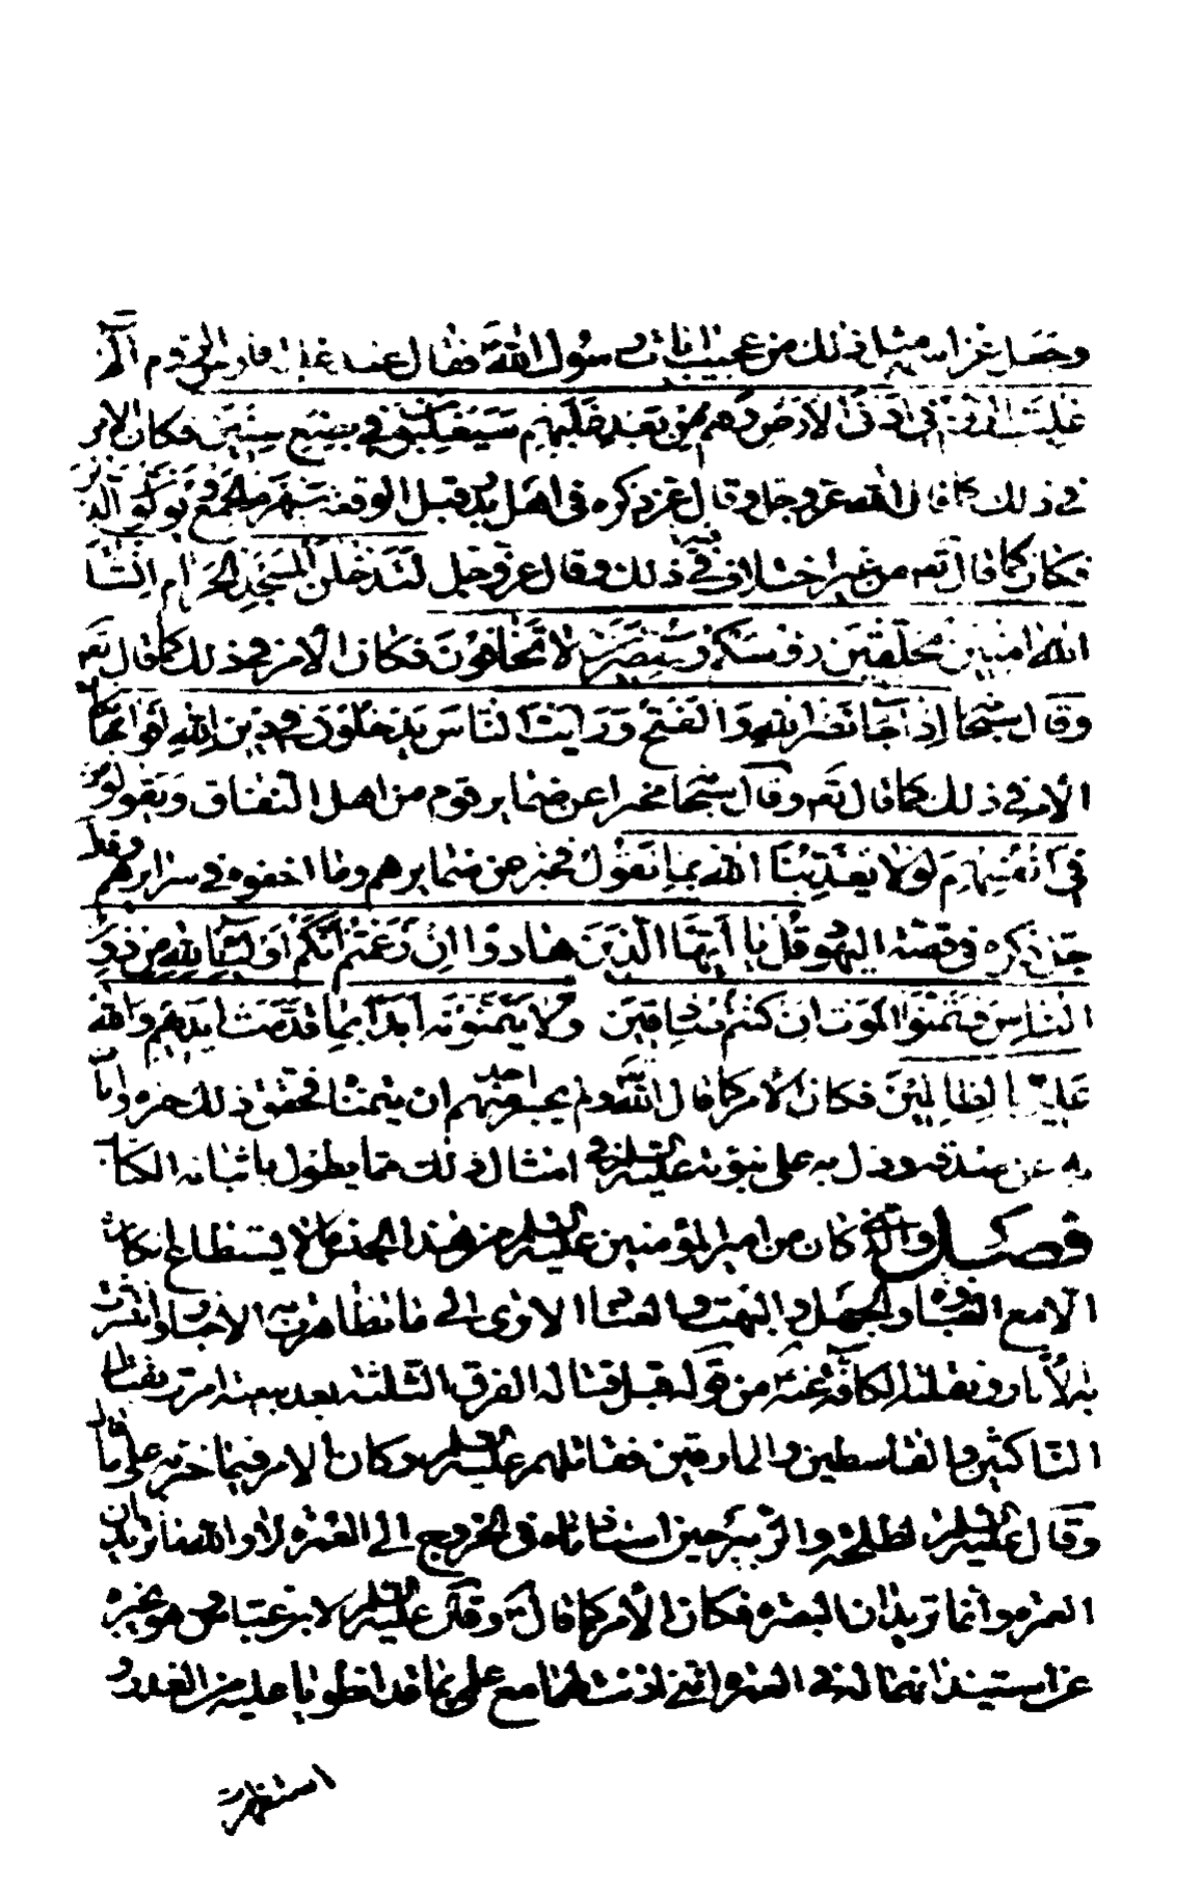 وحصل عن اسه مثل ذلك من عجيب ايات رسول الله فقال عند غلبة فارس الروم الم
غلبت الروم في ادنى الارض وهم من بعد غلبهم سيغلبون في بضع سنين فكان الامر
في ذلك كما قال الله عز وجل وقال عز ذكره في اهل بدر قبل الوقعة سيهزم الجمع ويولون الدبر
فكان كما قال تعه من غير اختلاف فيه في ذلك وقال عز وجل لتدخلن المسجد الحرام ان شاء
الله امنين محلقين رؤسكم ومقصرين لا تخافون فكان الامر في ذلك كما قال تعه
وقال سبحانه اذا جاء نصر الله والفتح ورايت الناس يدخلون في دين الله افواجا فكان
الامر في ذلك كما قال تعه وقال سبحانه مخبرا عن ضماير قوم من اهل النفاق ويقولون
في انفسهم لولا يعذبنا الله بما نقول فخبر عن ضمايرهم وما اخفوه في سرايرهم وقال
جل ذكره في قصة اليهود قل يا ايها الذين هادوا ان زعمتم انكم اولياء لله من دون
الناس فتمنوا الموت ان كنتم صادقين ولا يتمنونه ابدا بما قدمت ايديهم والله
عليم بالظالمين فكان الامر كما قال الله ولم يجسر احد منهم ان يتمناه فحقق ذلك خبره وابان
به عن صدقه ودل به على نبوته عليه السلم في امثال ذلك مما يطول باثباته الكتاب
فصل والذي كان من امير المؤمنين عليه السلم من هذا الجنس ما لا يستطاع انكاره
الا مع الغباوة والجهل والبهت والعناد الا ترى الى ما تظاهرت به الاخبار وانتشرت
به الاثار ونقلته الكافة عنه من قوله قبل قتاله الفرق الثلثة بعد بيعته امرت بقتال
الناكثين والقاسطين والمارقين فقاتلهم عليه السلم وكان الامر فيما خبر به على ما قال
وقال عليه السلم لطلحة والزبير حين استاذناه في الخروج الى العمرة لا والله ما تريدان
العمرة وانما تريدان البصرة فكان الامر كما قال وقال عليه السلم لابن عباس وهو يخبره
عن استيذانهما له في العمرة انني اذنت لهما مع علمي بما قد انطويا عليه من الغدر و
استظهرت